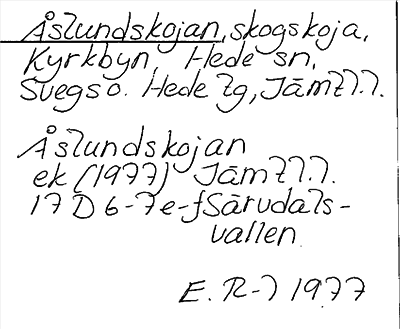 Åslundskojan, skogskoja,
Kyrkbyn, Hede sn,
Svegs o. Hede lg, Jämtl.l.
Åslundskojan
ek (1977) Jämtl.l.
17 D 6-7e-f Särvdals-
vallen
E. R-l 1977